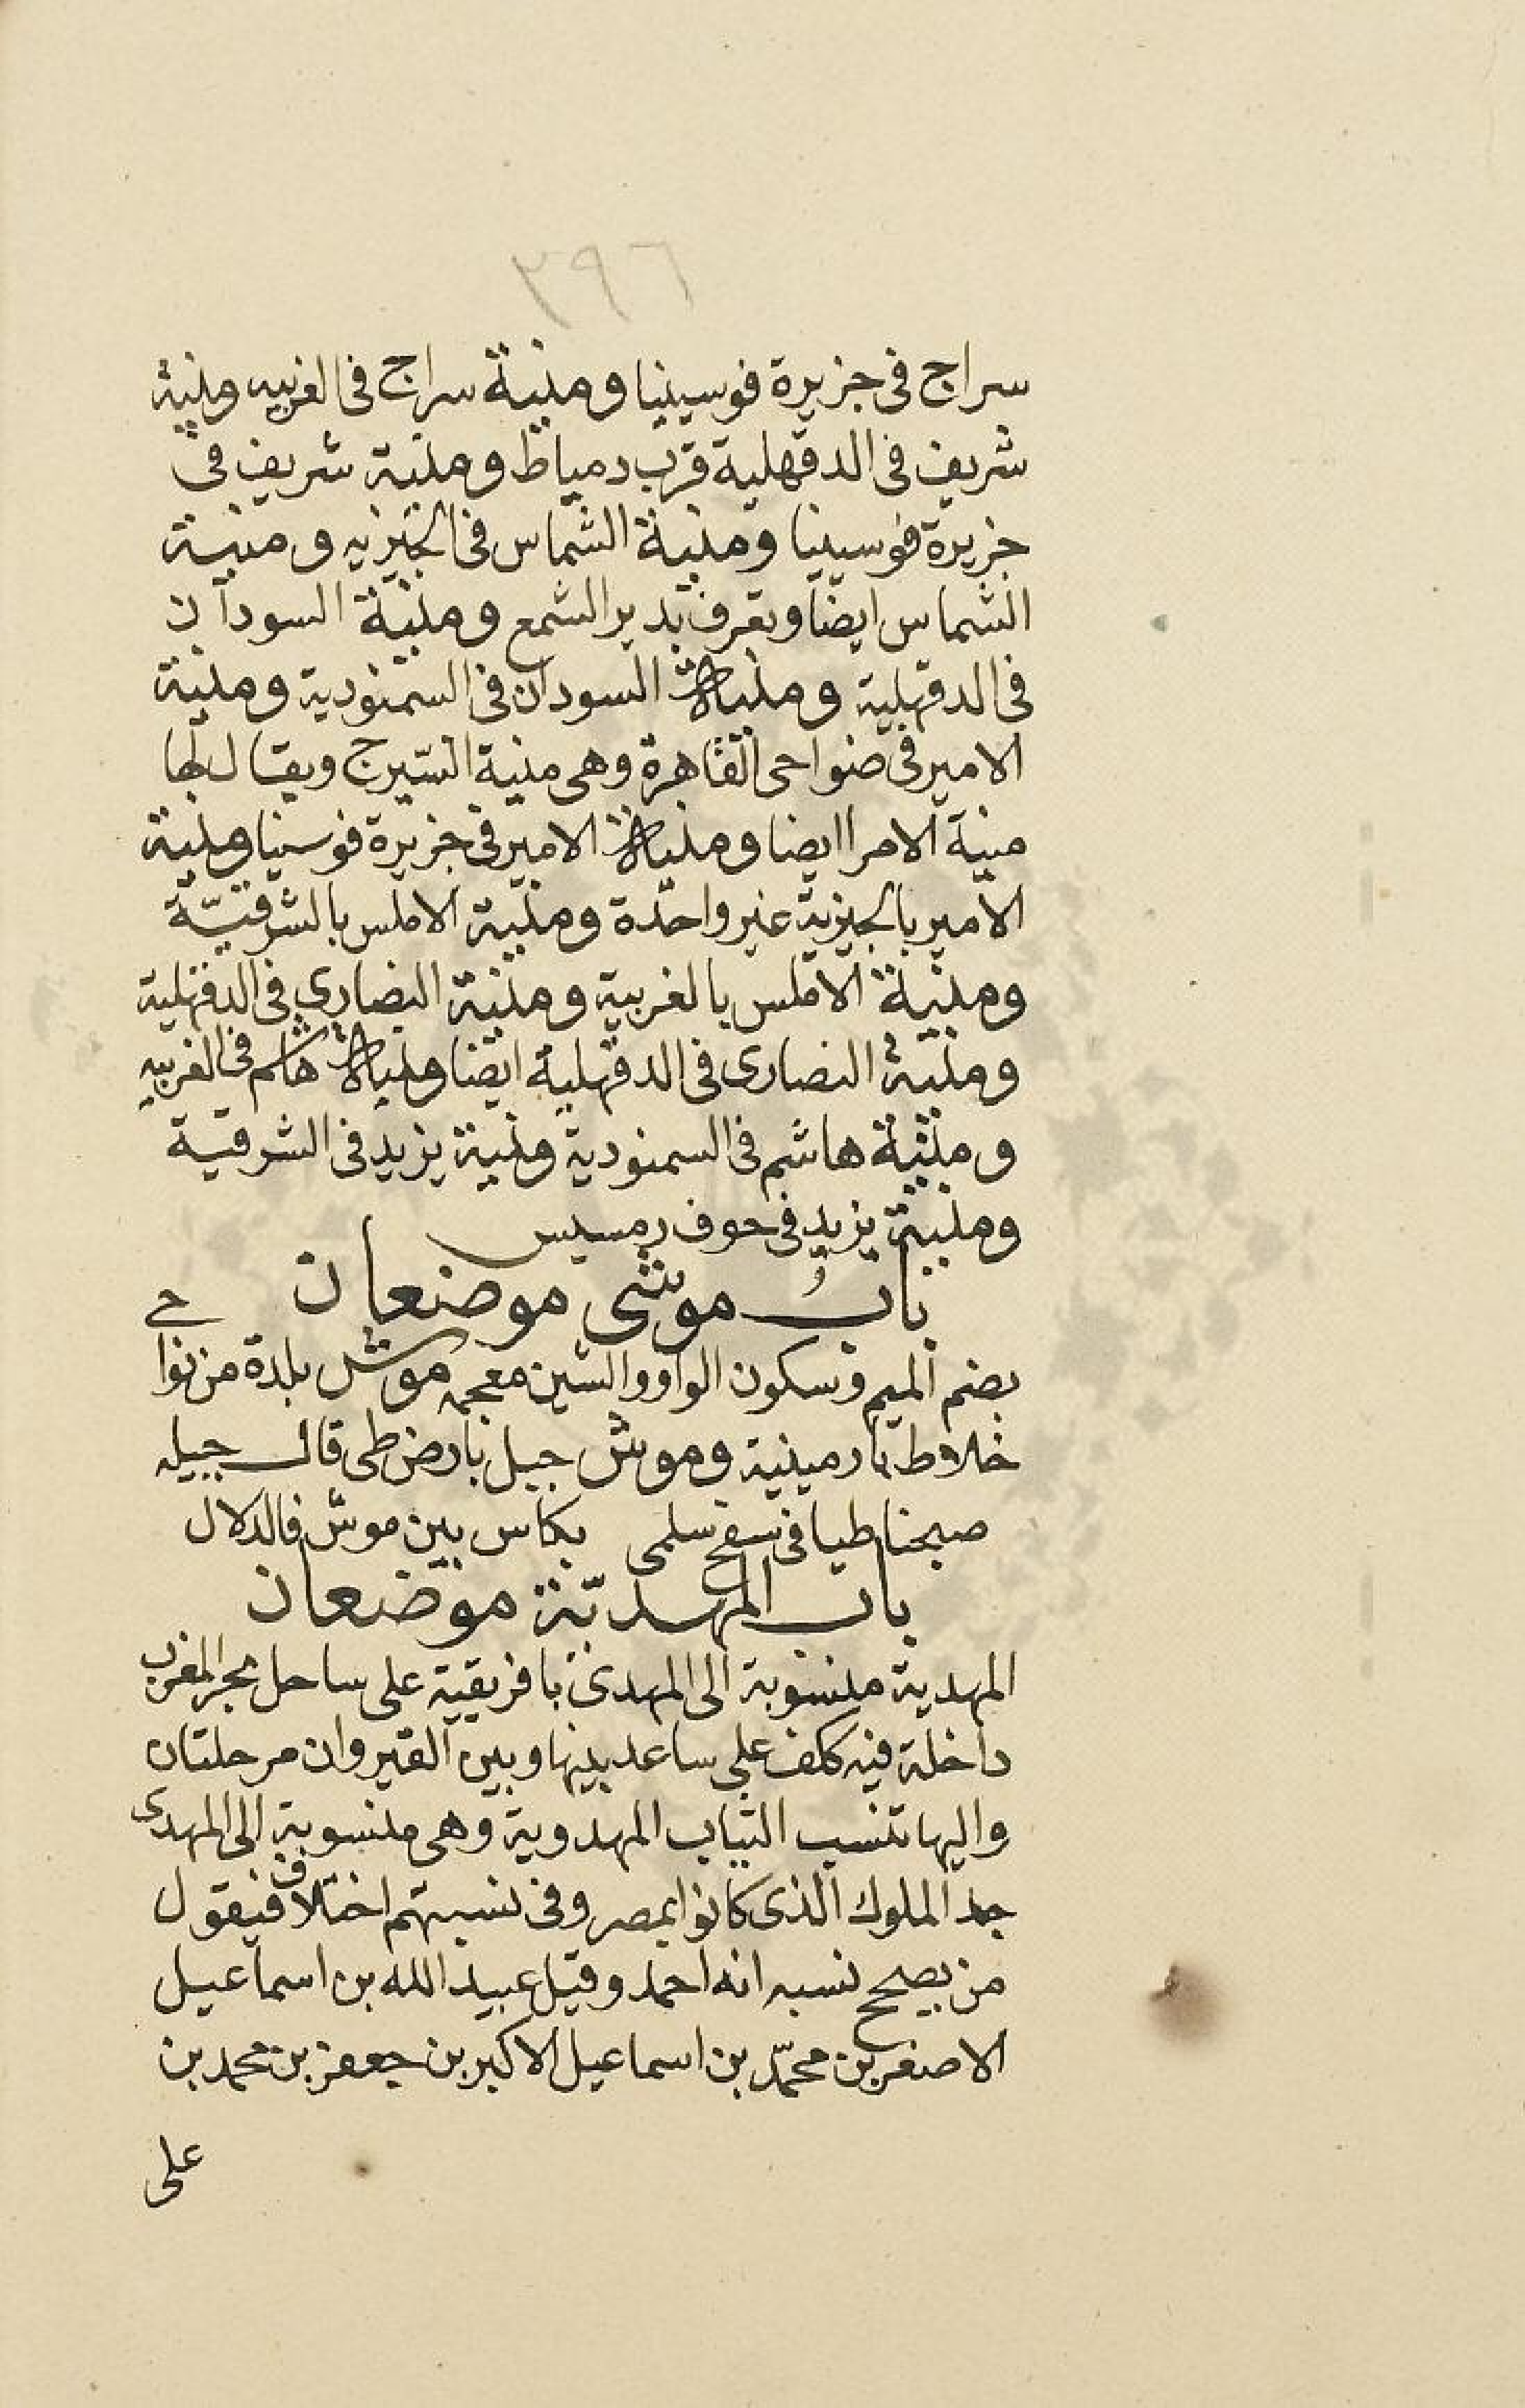 ٣٩٦
سراج فى جزيرة قوسينيا ومنية سراج فى الغربيه ومنية
شريف فى الدقهلية قرب دمياط ومنية شريف فى
جزيرة قوسينيا ومنية الشماس فى الجيزيه ومنية
الشماس ايضا وتعرف بدير الشمع ومنية السودان
فى الدقهلية ومنية السودان فى السمنودية ومنية
الامير فى ضواحى القاهرة وهى منية السّيرج ويقال لها
منية الامرا ايضا ومنية الامير فى جزيرة قوسنيا ومنية
الامير بالجيزية غير واحدة ومنية الاملس بالشرقيّة
ومنية الاملس بالغربية ومنية النصارى فى الدقهلية
ومنية النصارى فى الدقهلية ايضا ومنية هاشم فى الغربيه
ومنية هاشم فى السمنودية ومنية يزيد فى الشرقية
ومنية يزيد فى حوف رمسيس
باب موشى موضعان
بضم الميم وسكون الواو والشين معجمه موش بلدة من نواحى
خلاط بارمينية وموش جبل بارض طى قال جبيله
صبحنا طيا فى سفح سلمى بكاس بين موش فالدلال
باب المهديّة موضعان
المهدية منسوبة الى المهدى بافريقية على ساحل بحر المغرب
داخلة فيه ككف على ساعد بينها وبين القيروان مرحلتان
واليها تنسب الثياب المهدوية وهى منسوبة الى المهدى
جد الملوك الذى كانوا بمصر وفى نسبتهم اختلاف فيقول
من يصحح نسبه انه احمد وقيل عبيد الله بن اسماعيل
الاصغر بن محمّد بن اسماعيل الاكبر بن جعفر بن محمد بن
على